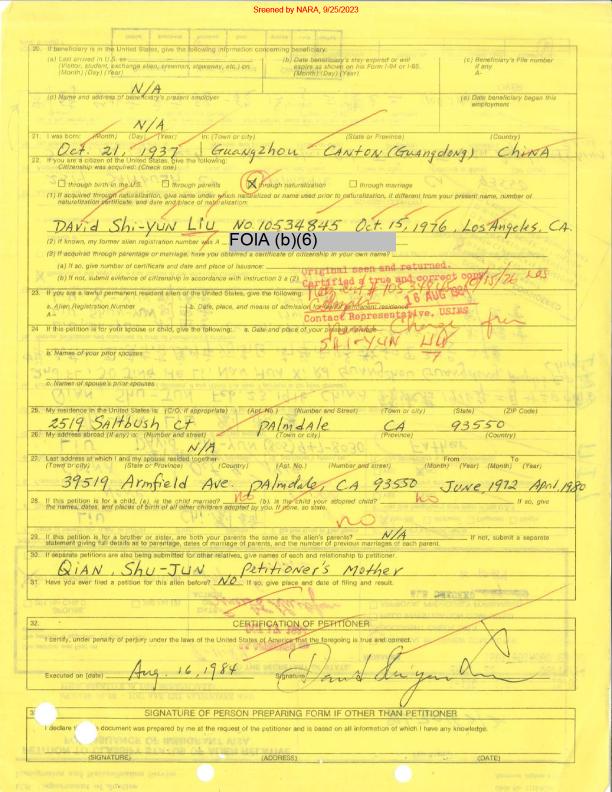 Sreened by NARA, 9/25/2023
20. If beneficiary is in the United States, give the following information concerning beneficiary.
(a) Last arrived in U.S. as
(Visitor, student, exchange alien, crewman, stowaway, etc.) on
(Month) (Day) (Year)
(b) Date beneficiary's stay expired or will
expire as shown on his Form I-94 or I-95.
(Month) (Day) (Year)
(c) Beneficiary's File number
if any
A-
N/A
(d) Name and address of beneficiary's present employer
(e) Date beneficiary began this
employment
N/A
21. I was born: (Month) (Day) (Year) in: (Town or city) (State or Province) (Country)
Oct. 21, 1937 Guangzhou CANTON (Guangdong) CHINA
22. If you are a citizen of the United States, give the following:
Citizenship was acquired: (Check one)
through birth in the U.S. through parents X through naturalization through marriage
(1) If acquired through naturalization, give name under which naturalized or name used prior to naturalization, if different from your present name, number of
naturalization certificate, and date and place of naturalization:
DAVID Shi-YUN LIU NO. 10534845 Oct. 15, 1976, Los Angeles, CA.
(2) If known, my former alien registration number was A
FOIA (b)(6)
(3) If acquired through parentage or marriage, have you obtained a certificate of citizenship in your own name?
(a) If so, give number of certificate and date and place of issuance:
(b) If not, submit evidence of citizenship in accordance with instruction 3 a (2)
Original seen and returned.
Certified a true and correct copy
16 AUG 1984
Contact Representative, USINS
Name Change from
SHI-YUN LIU
23. If you are a lawful permanent resident alien of the United States, give the following:
a. Alien Registration Number
A-
b. Date, place, and means of admission for lawful permanent residence
24. If this petition is for your spouse or child, give the following: a. Date and place of your present marriage
b. Names of your prior spouses
c. Names of spouse's prior spouses
25. My residence in the United States is: (C/O, if appropriate) (Apt. No.) (Number and street) (Town or city) (State) (ZIP Code)
2519 Saltbush Ct PAlmdale CA 93550
26. My address abroad (if any) is: (Number and street) (Town or city) (Province) (Country)
N/A
27. Last address at which I and my spouse resided together From To
(Town or city) (State or Province) (Country) (Apt. No.) (Number and street) (Month) (Year) (Month) (Year)
39519 Armfield Ave. PAlmdale, CA 93550 JUNE, 1972 April 1980
28. If this petition is for a child, (a) is the child married? no (b) is the child your adopted child? no If so, give
the names, dates, and places of birth of all other children adopted by you. If none, so state.
no
29. If this petition is for a brother or sister, are both your parents the same as the alien's parents? N/A If not, submit a separate
statement giving full details as to parentage, dates of marriage of parents, and the number of previous marriages of each parent.
30. If separate petitions are also being submitted for other relatives, give names of each and relationship to petitioner.
QIAN, Shu-JUN Petitioner's Mother
31. Have you ever filed a petition for this alien before? NO If so, give place and date of filing and result.
32. CERTIFICATION OF PETITIONER
I certify, under penalty of perjury under the laws of the United States of America that the foregoing is true and correct.
Executed on (date) Aug. 16, 1984 Signature David Shi-yun Liu
SIGNATURE OF PERSON PREPARING FORM IF OTHER THAN PETITIONER
I declare document was prepared by me at the request of the petitioner and is based on all information of which I have any knowledge.
(SIGNATURE) (ADDRESS) (DATE)